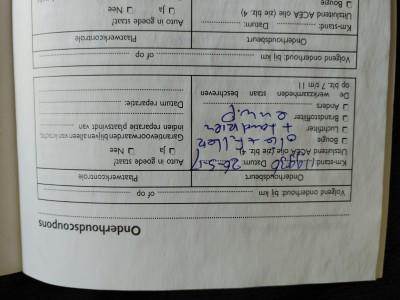 Onderhoudscoupons
Volgend onderhoud: bij km of op
Onderhoudsbeurt
Plaatwerkcontrole
Km-stand: Datum: 26.5.17
Auto in goede staat?
Uitsluitend ACEA olie (zie blz. 4)
❏ Ja ❏ Nee
❏ Bougie
olie + filter
Garantievoorwaarden bij eventuele
❏ Luchtfilter
❏ Brandstoffilter
❏ Anders
indien reparatie plaatsvindt
Datum reparatie:
De werkzaamheden staan beschreven
op blz. 7 t/m 11
Volgend onderhoud: bij km of op
Onderhoudsbeurt
Plaatwerkcontrole
Km-stand: Datum:
Auto in goede staat?
Uitsluitend ACEA olie (zie blz. 4)
❏ Ja ❏ Nee
❏ Bougie